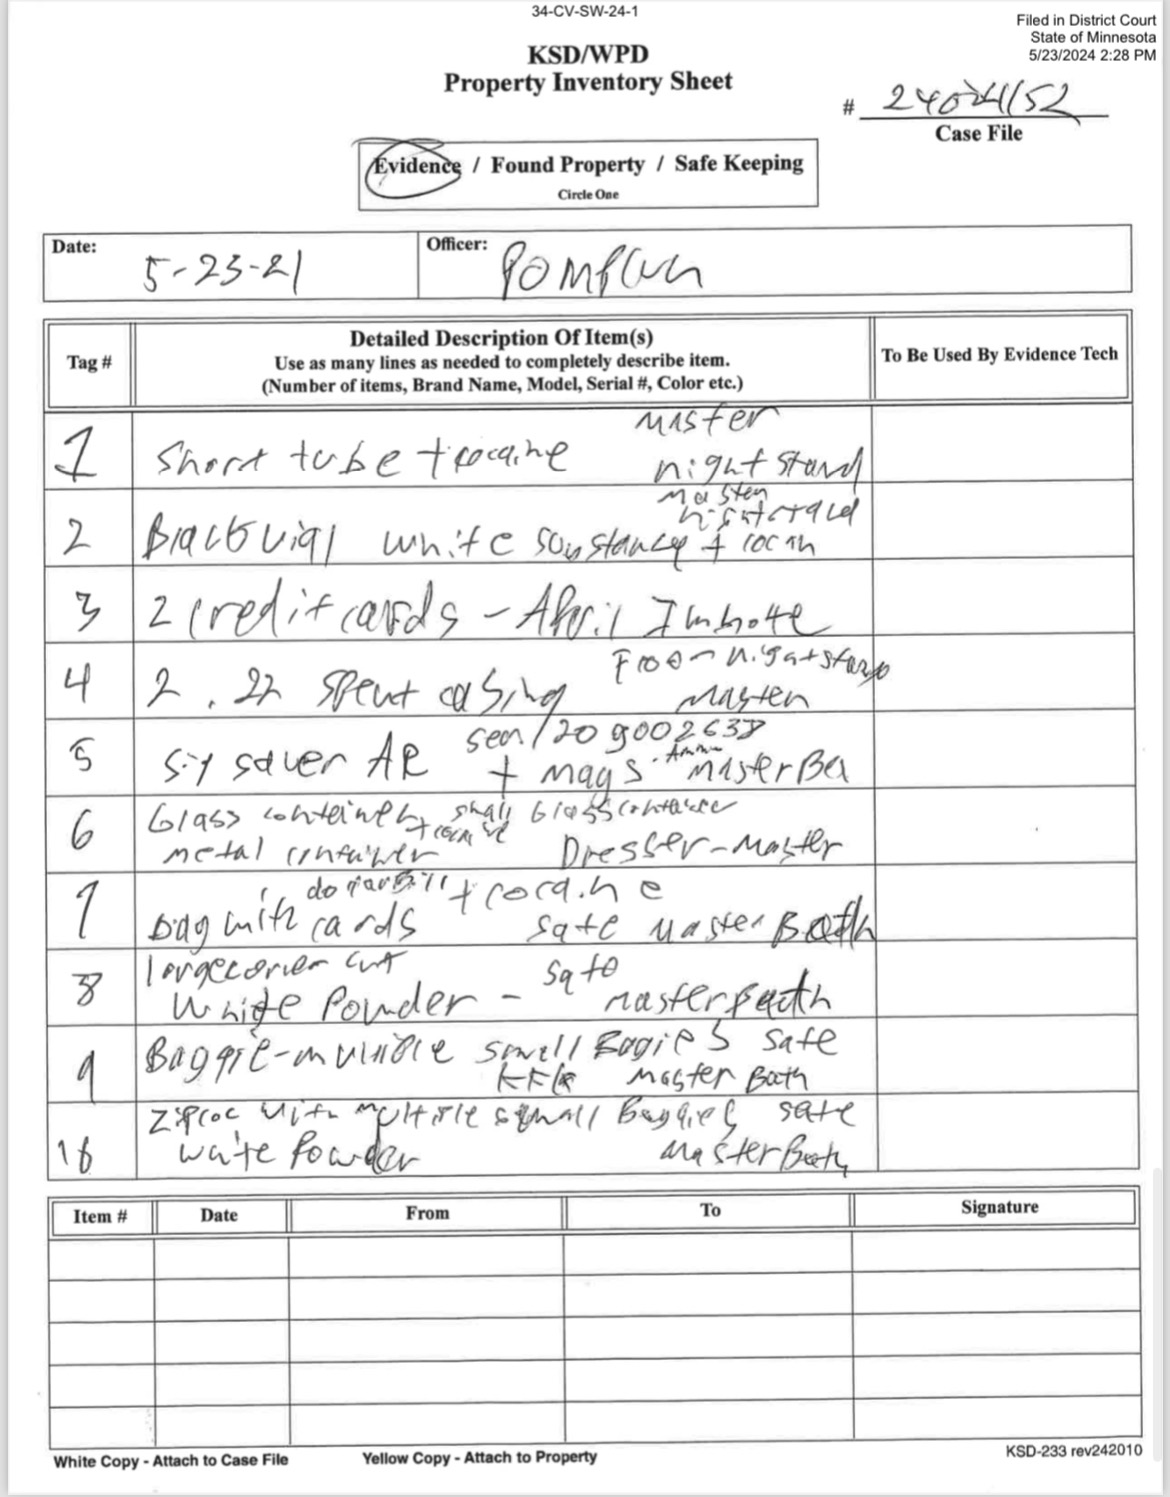 34-CV-SW-24-1
Filed in District Court
State of Minnesota
5/23/2024 2:28 PM
KSD/WPD
Property Inventory Sheet
#
Case File
Evidence / Found Property / Safe Keeping
Circle One
Date: 5-23-21
Officer:
Tag #
Detailed Description Of Item(s)
Use as many lines as needed to completely describe item.
(Number of items, Brand Name, Model, Serial #, Color etc.)
To Be Used By Evidence Tech
Master
1 Short tube + cocaine night stand
Master
2 Black vial white substance +
3 2 credit cards - April
From nightstand
4 2 .22 spent casing Master
5 AR + mags Ammo Master
6 Glass container small Glass container
metal container Dresser-Master
dollar Bill + cocaine
7 bag with cards safe Master Bath
large corner cut safe
8 White Powder - Master Bath
9 Baggie-multiple small Bagies safe
Master Bath
Ziploc with multiple small Baggies safe
10 white Powder Master Bath
Item # Date From To Signature
White Copy - Attach to Case File Yellow Copy - Attach to Property KSD-233 rev242010